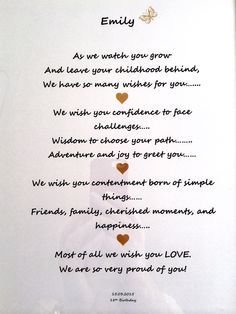 Emily
As we watch you grow
And leave your childhood behind,
We have so many wishes for you.......
We wish you confidence to face
challenges....
Wisdom to choose your path.......
Adventure and joy to greet you......
We wish you contentment born of simple
things......
Friends, family, cherished moments, and
happiness.....
Most of all we wish you LOVE.
We are so very proud of you!
Birthday